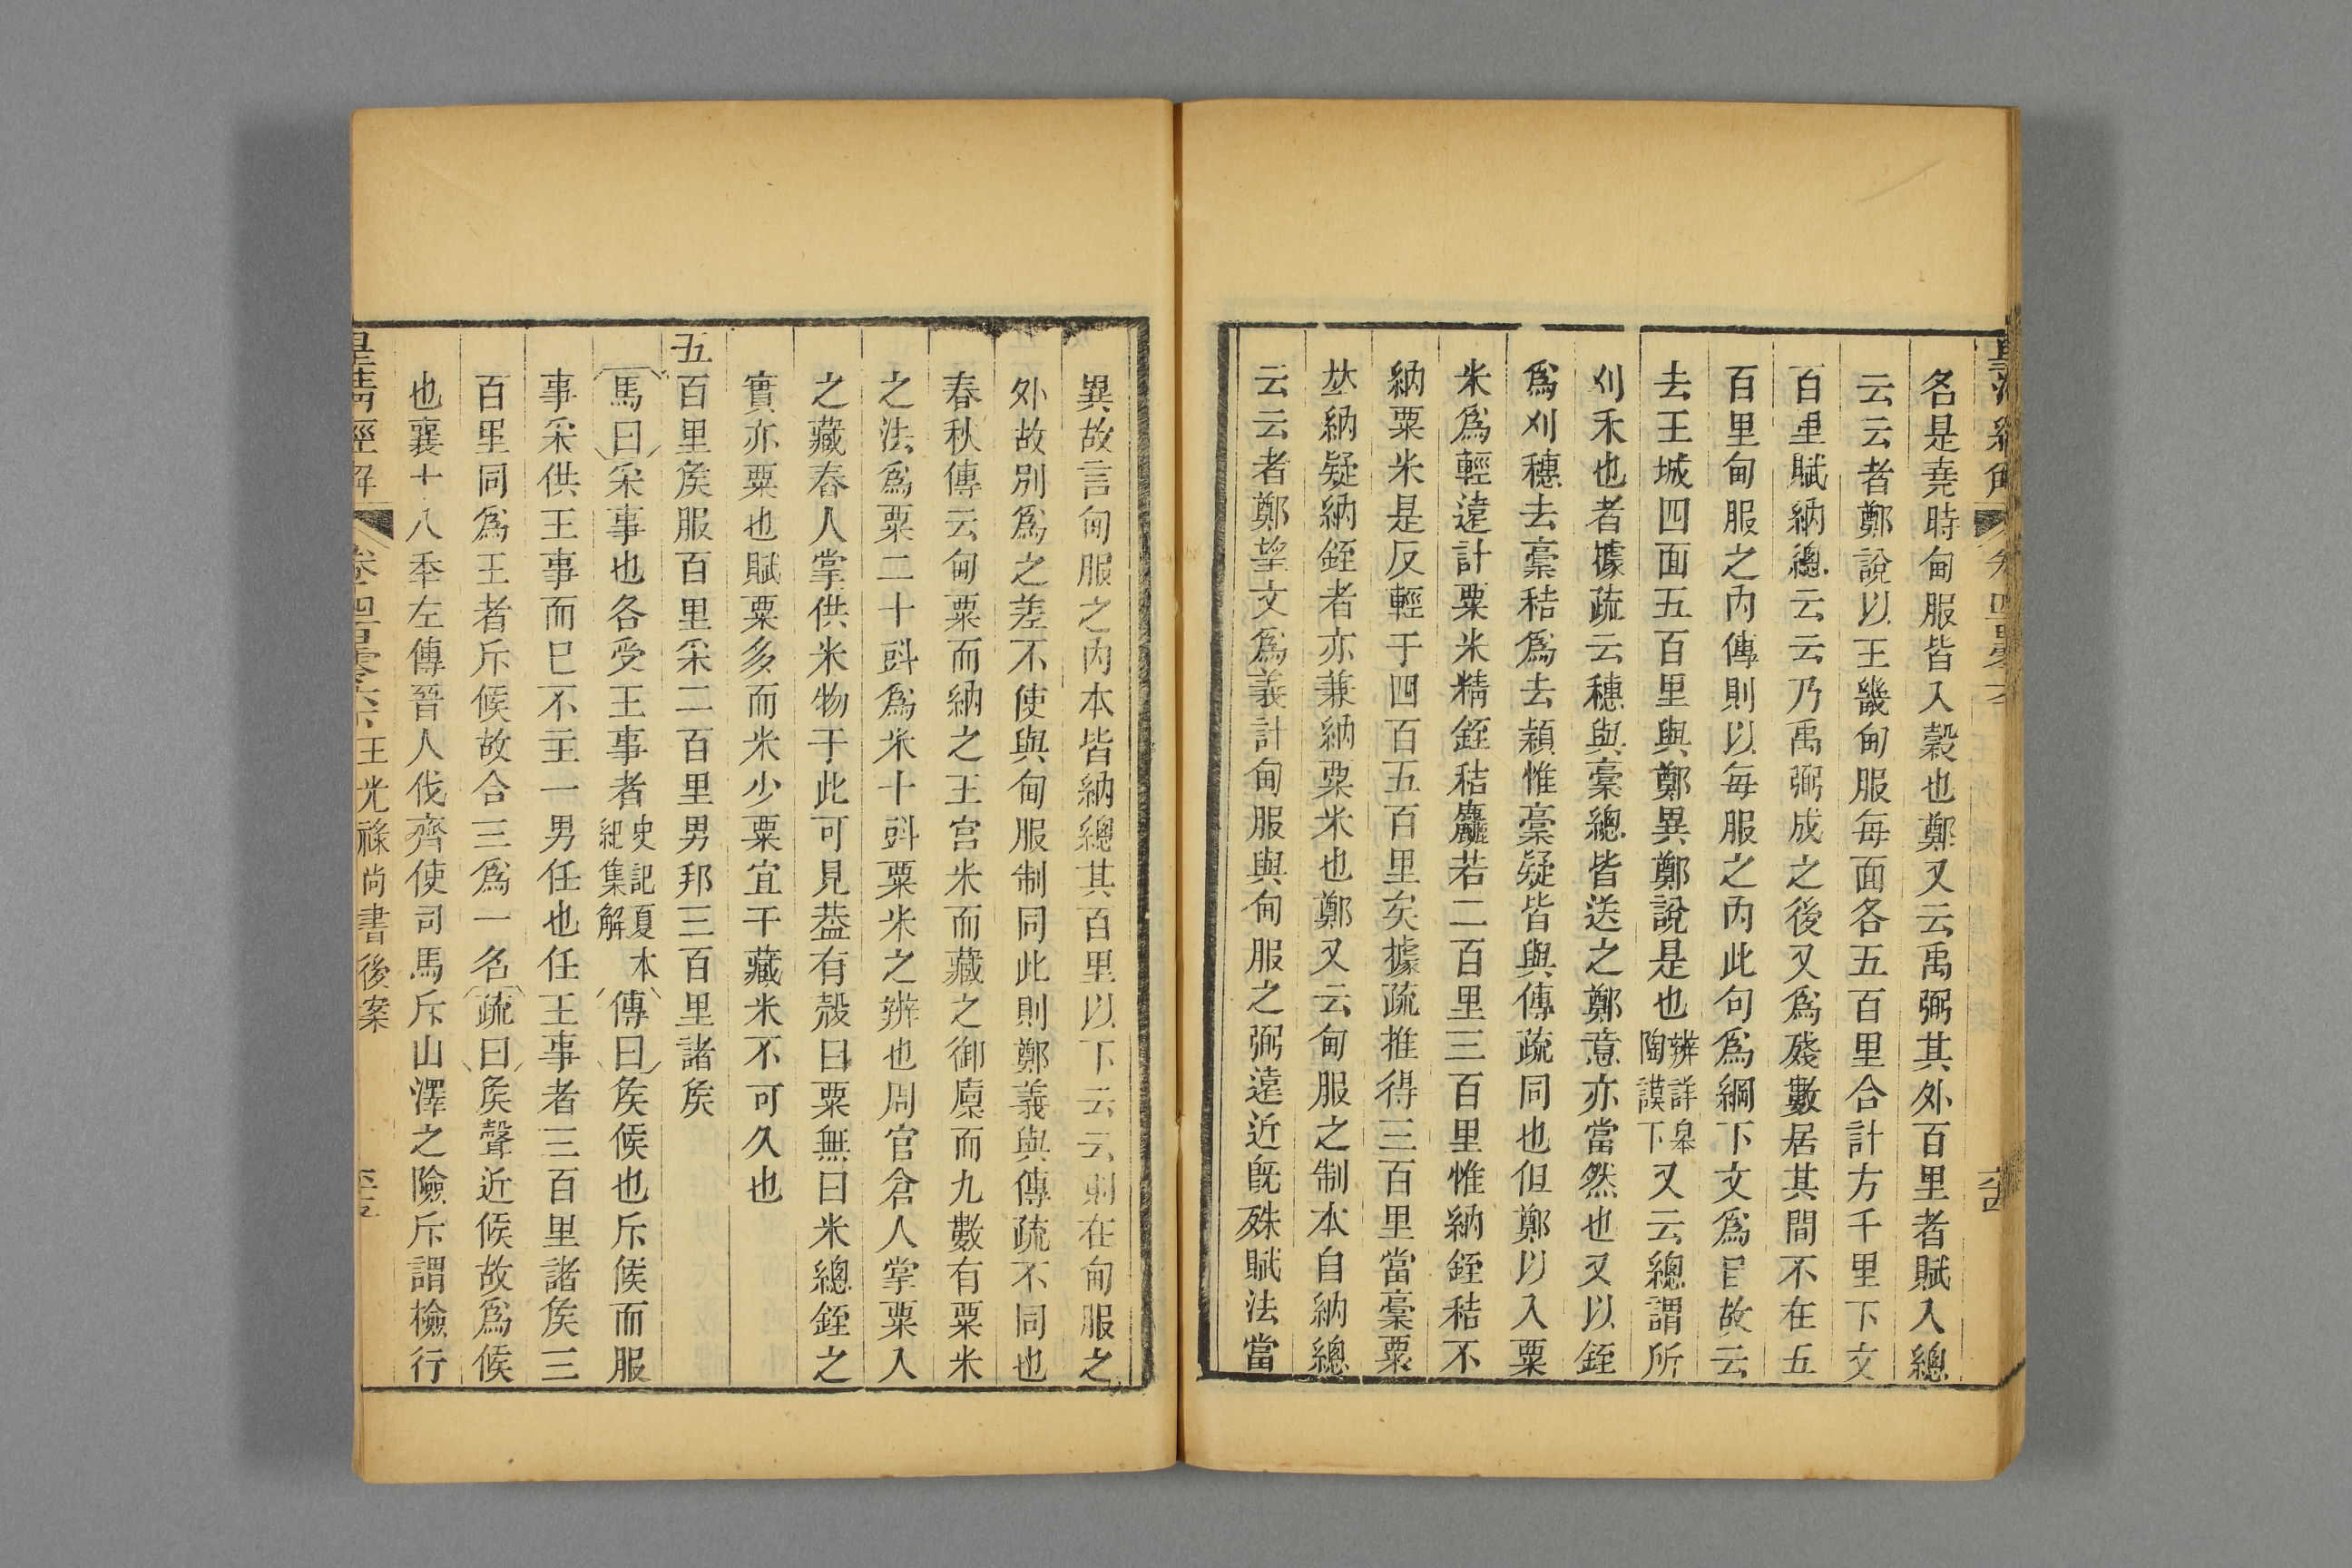 名是堯時甸服皆入穀也鄭又云禹弼其外百里者賦入總
云云者鄭說以王畿甸服每面各五百里合計方千里下文
百里賦納總云云乃禹弼成之後又爲殘數居其間不在五
百里甸服之內傳則以每服之內此句爲綱下文爲目故云
去王城四面五百里與鄭異鄭說是也辨詳皋陶謨下又云總謂所
刈禾也者據疏云穗與稾總皆送之鄭意亦當然也又以銍
爲刈穗去稾秸爲去穎惟稾疑皆與傳疏同也但鄭以入粟
米爲輕遠計粟米精銍秸麤若二百里三百里惟納銍秸不
納粟米是反輕于四百五百里矣據疏推得三百里當稾粟
𠀤納疑納銍者亦兼納粟米也鄭又云甸服之制本自納總
云云者鄭望文爲義計甸服與甸服之弼遠近旣殊賦法當
異故言甸服之內本皆納總其百里以下云云則在甸服之
外故別爲之差不使與甸服制同此則鄭義與傳疏不同也
春秋傳云甸粟而納之王宮米而藏之御廩而九數有粟米
之法爲粟二十㪷爲米十㪷粟米之辨也周官倉人掌粟入
之藏舂人掌供米物于此可見葢有殼曰粟無曰米總銍之
實亦粟也賦粟多而米少粟宜于藏米不可久也
五百里矦服百里采二百里男邦三百里諸矦
馬曰采事也各受王事者史記夏本紀集解傳曰矦候也斥候而服
事采供王事而巳不主一男任也任王事者三百里諸矦三
百里同爲王者斥候故合三爲一名疏曰矦聲近候故爲候
也襄十八秊左傳晉人伐齊使司馬斥山澤之險斥謂檢行
皇清經解 卷四百零六下 王光祿尚書後案